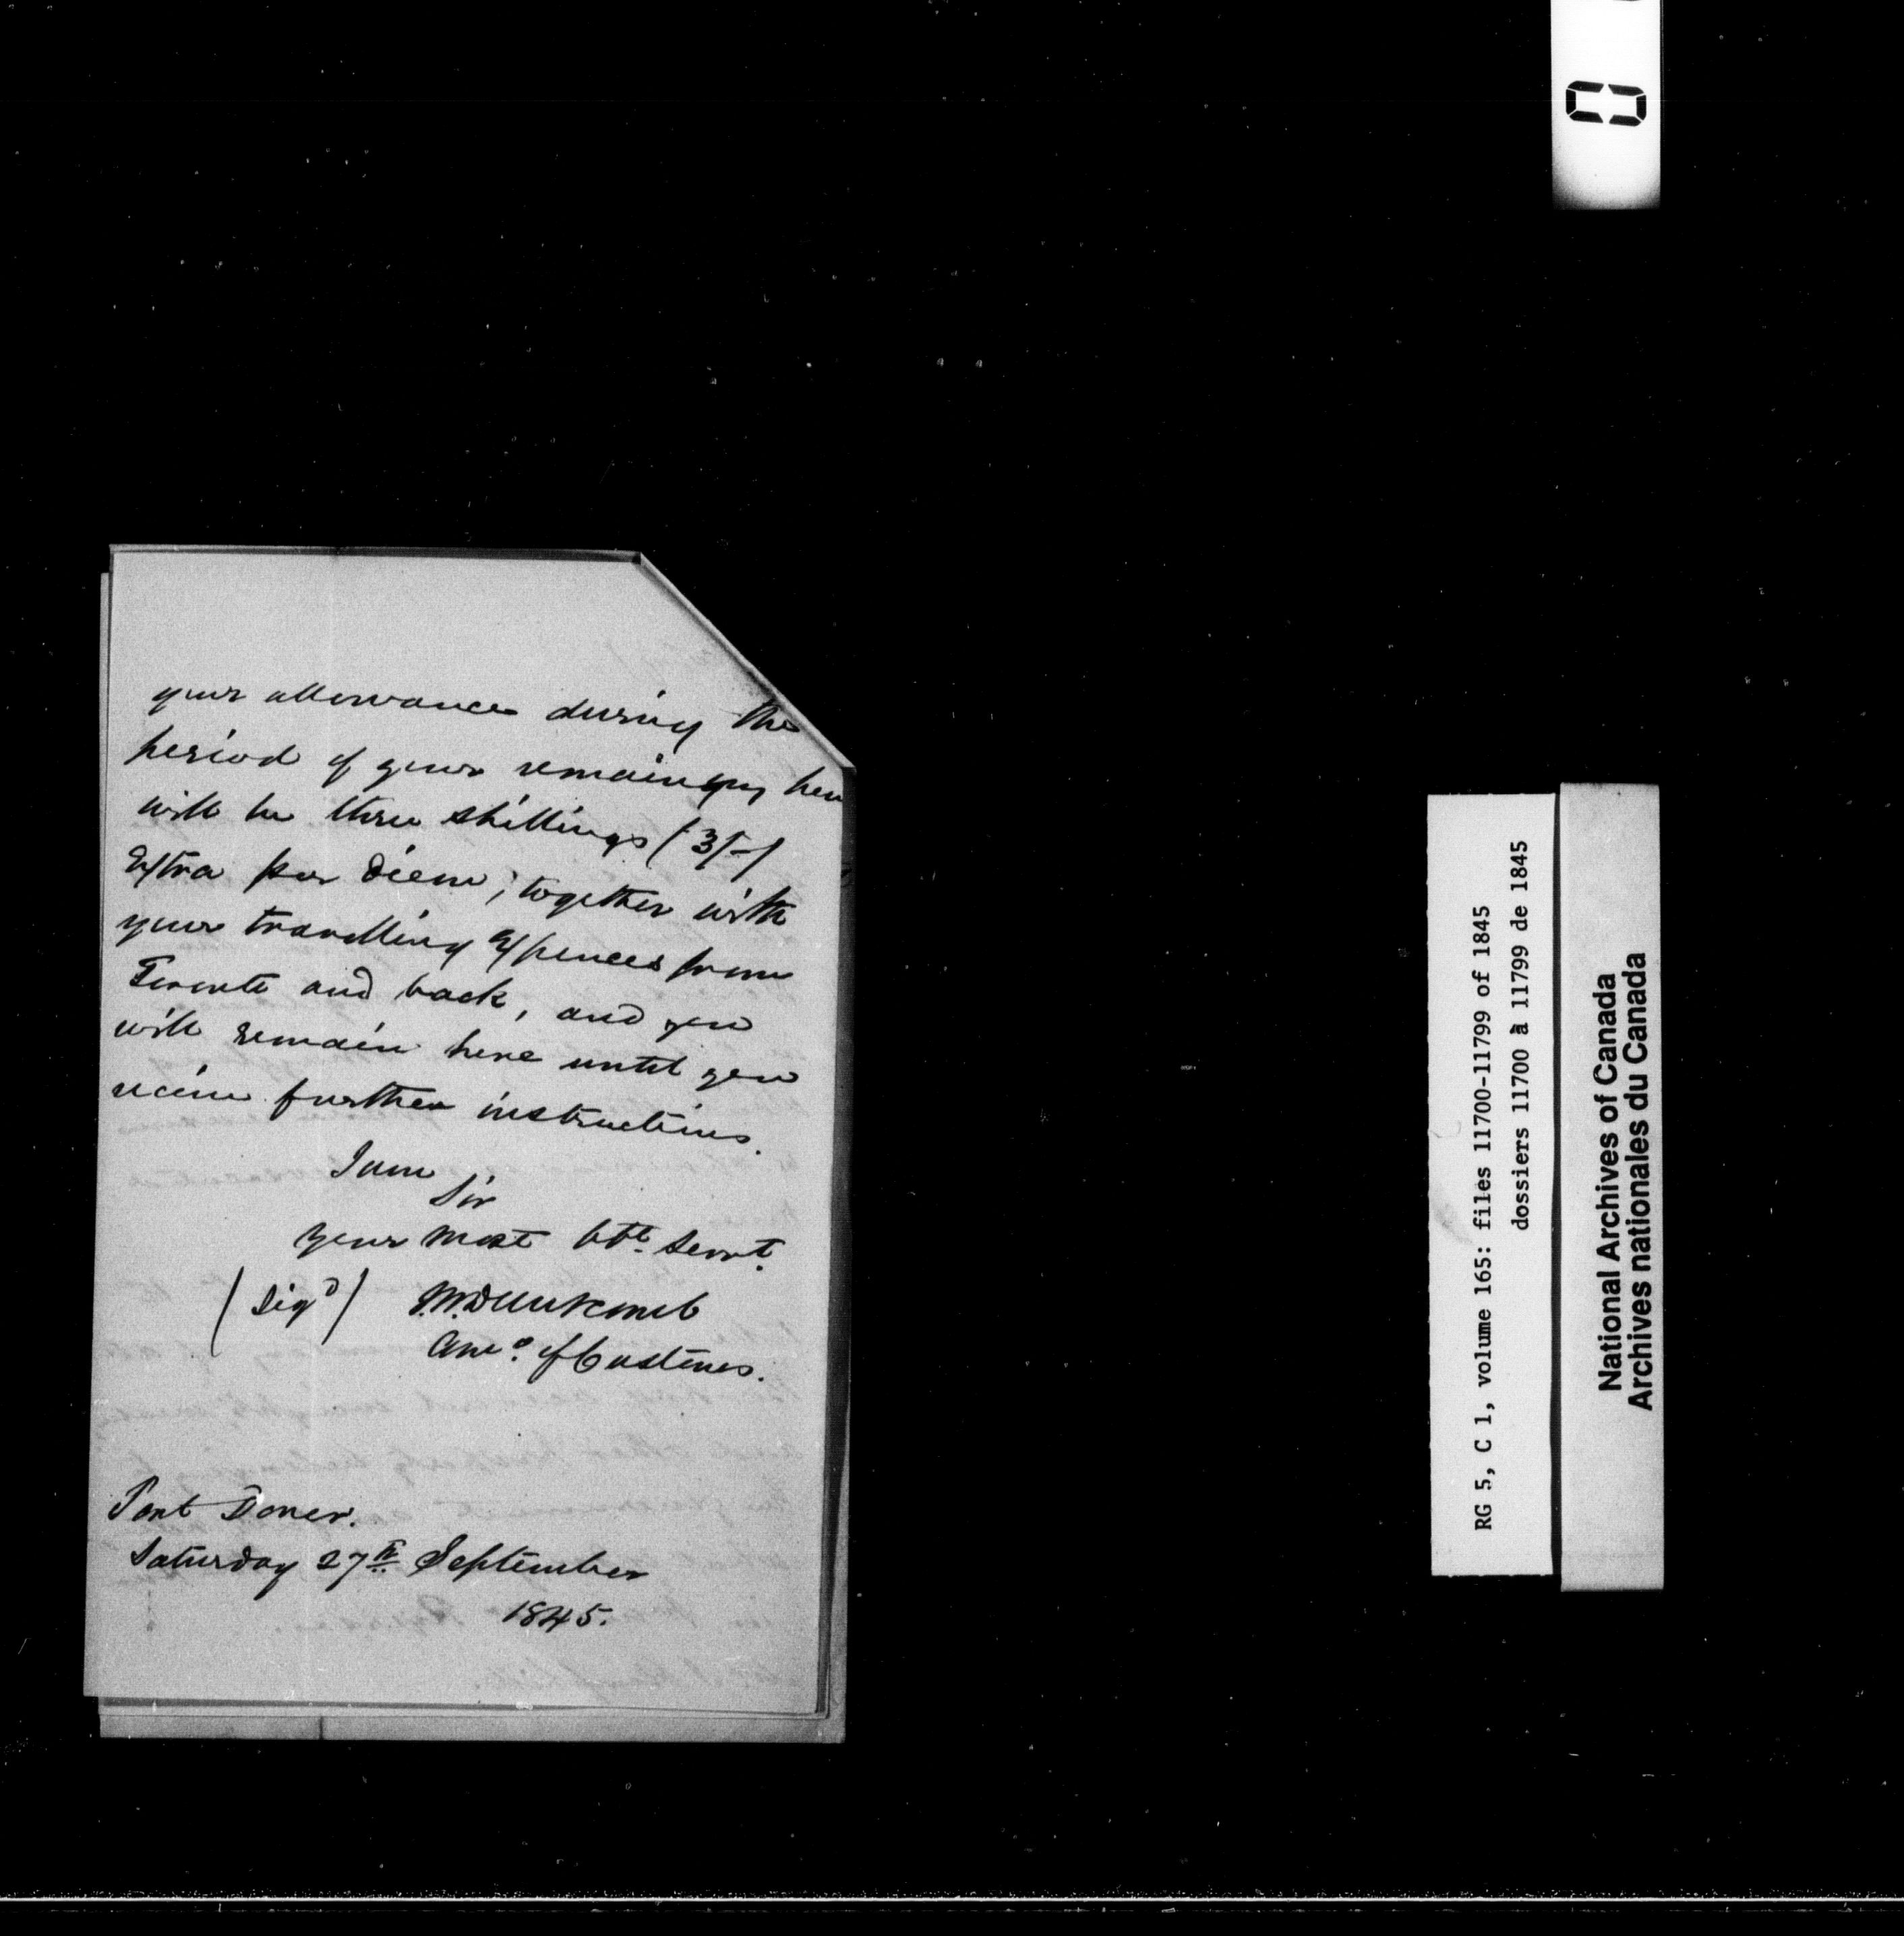 your allowance during the
period of your remaining here
will be three shillings (3/-)
Extra per diem; together with
your travelling Expences from
Toronto and back, and you
will remain here until you
receive further instructions.
I am
Sir
your most obt. Servt.
(Sigd)
of Customs.
Port Dover.
Saturday 27th September
1845.
RG 5, C 1, volume 165: files 11700-11799 of 1845
dossiers 11700 à 11799 de 1845
National Archives of Canada
Archives nationales du Canada